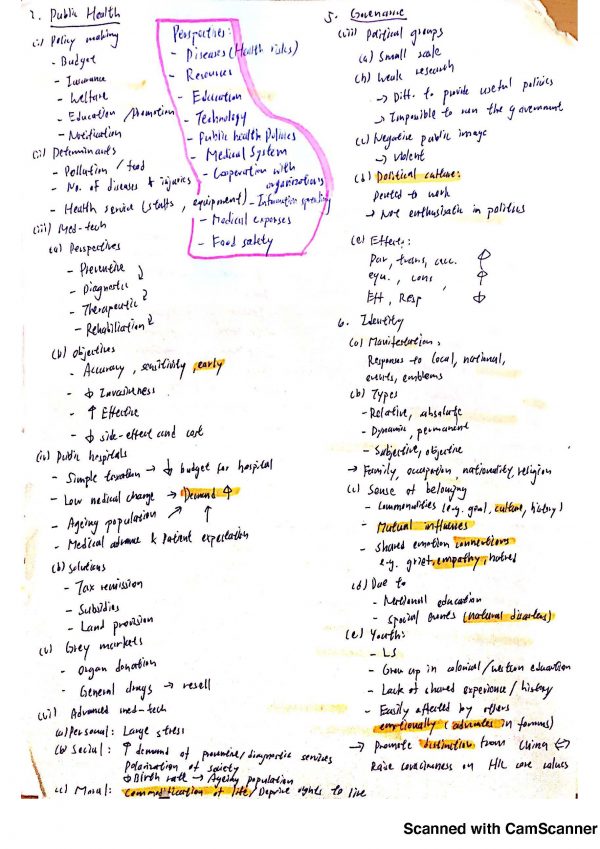 2. Public Health
(i) Policy making
- Budget
- Insurance
- Welfare
- Education / Promotion
- Notification
(ii) Determinants
- Pollution / food
- No. of diseases & injuries
- Health service (staffs, equipment)
(iii) Med-tech
(a) Perspectives
- Preventive
- Diagnostic
- Therapeutic
- Rehabiliation
(b) Objectives
- Accuracy, sensitivity, early
- ↓ Invasiveness
- ↑ Effective
- ↓ side-effect and cost
(iv) Public hospitals
- Simple taxation → ↓ budget for hospital
- Low medical charge → Demand ↑
- Ageing population ↗ ↑
- Medical advance & Patient expectation
(b) Solutions
- Tax remission
- Subsidies
- Land provision
(v) Grey markets
- Organ donation
- General drugs → resell
(vi) Advanced med-tech
(a) Personal: Large stress
(b) Social: ↑ demand of preventive/diagnostic services
Polarization of society
↓ Birth rate → Ageing population
(c) Moral: Commodification of life/Deprive rights to live
Perspectives:
- Diseases (Health risks)
- Resources
- Education
- Technology
- Public health Policies
- Medical System
- Cooperation with
organizations
- Information spreading
- Medical expenses
- Food safety
5. Governance
(iii) Political groups
(a) Small scale
(b) Weak research
→ Diff. to provide useful policies
→ Impossible to run the government
(c) Negative public image
→ Violent
(d) Political culture:
Devoted to work
→ Not enthusiastic in politics
(e) Effects:
Par, trans, acc. ↑
equ., cons ↑
Eff, Resp ↓
6. Identity
(a) Manifestation:
Responses to local, national,
events, emblems
(b) Types
- Relative, absolute
- Dynamic, permanent
- Subjective, objective
→ Family, occupation, nationality, religion
(c) Sense of belonging
- Commonalities (e.g. goal, culture, history)
- Mutual influences
- Shared emotion connections
e.g. grief, empathy, hatred
(d) Due to
- National education
- Special events (natural disasters)
(e) Youth:
- LS
- Grow up in colonial/western education
- Lack of shared experience / history
- Easily affected by others
emotionally (advocates in forums)
→ Promote distinction from China ↔
Raise consciousness on HK core values
Scanned with CamScanner